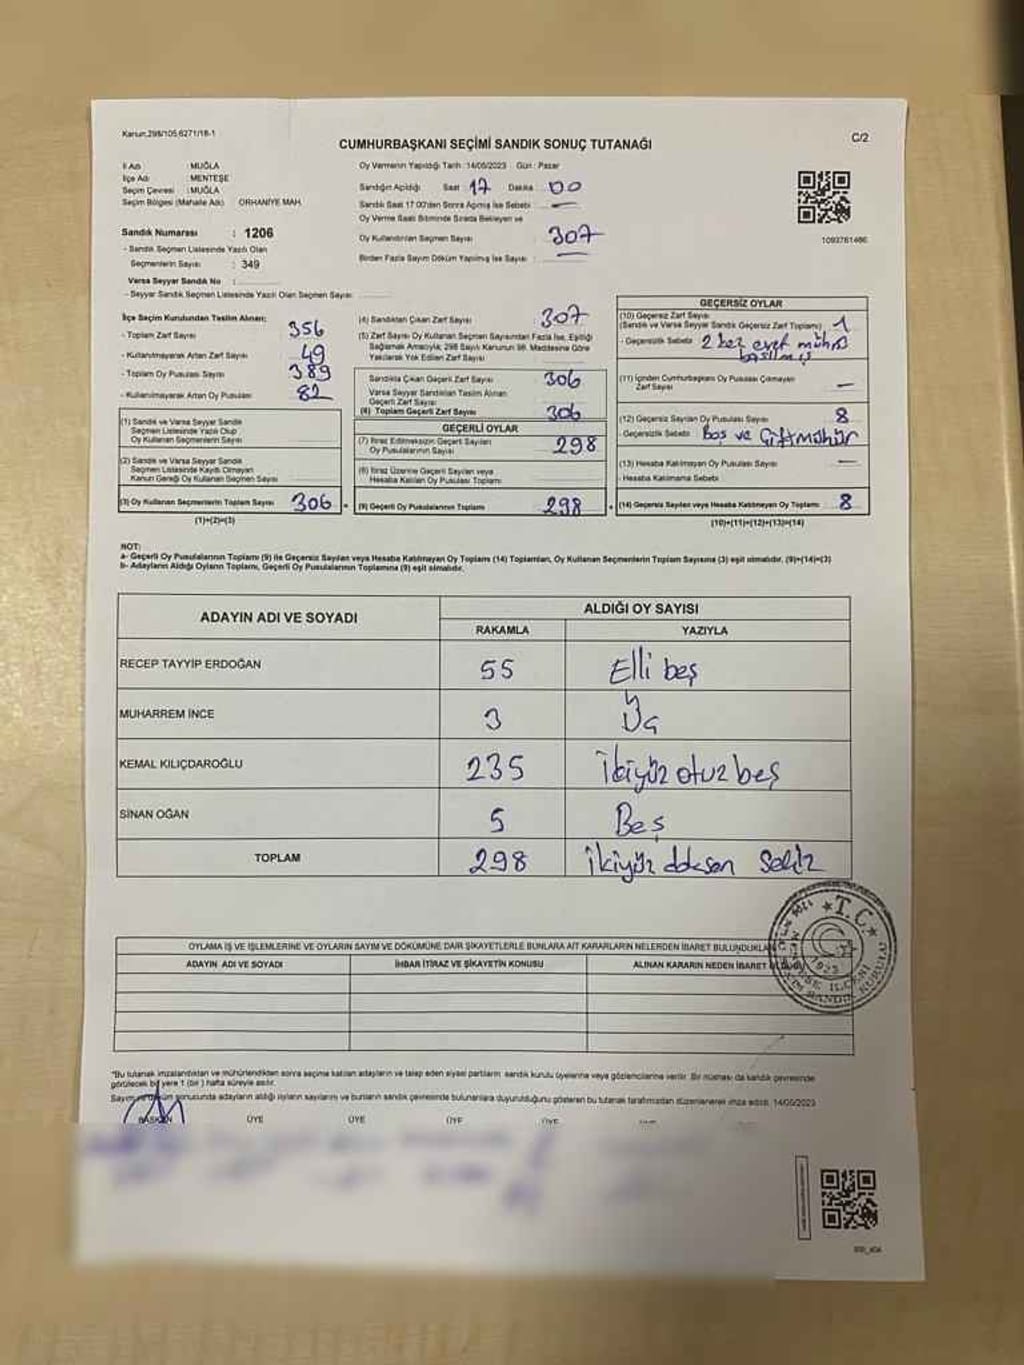 Kanun.298/105,6271/18-1
CUMHURBAŞKANI SEÇİMİ SANDIK SONUÇ TUTANAĞI
C/2
İl Adı : MUĞLA
İlçe Adı : MENTEŞE
Seçim Çevresi : MUĞLA
Seçim Bölgesi (Mahalle Adı) ORHANİYE MAH.
Sandık Numarası : 1206
- Sandık Seçmen Listesinde Yazılı Olan
Seçmenlerin Sayısı : 349
Varsa Seyyar Sandık No :
- Seyyar Sandık Seçmen Listesinde Yazılı Olan Seçmen Sayısı
Oy Vermenin Yapıldığı Tarih : 14/05/2023 Gün : Pazar
Sandığın Açıldığı Saat 17 Dakika 00
Sandık Saat 17:00'den Sonra Açılmış İse Sebebi : —
Oy Verme Saati Bitiminde Sırada Bekleyen ve
Oy Kullandırılan Seçmen Sayısı 307
Birden Fazla Sayım Döküm Yapılmış İse Sayısı : —
1093761466
İlçe Seçim Kurulundan Teslim Alınan:
- Toplam Zarf Sayısı 356
- Kullanılmayarak Artan Zarf Sayısı 49
- Toplam Oy Pusulası Sayısı 389
- Kullanılmayarak Artan Oy Pusulası 82
(1) Sandık ve Varsa Seyyar Sandık
Seçmen Listesinde Yazılı Olup
Oy Kullanan Seçmenlerin Sayısı
(2) Sandık ve Varsa Seyyar Sandık
Seçmen Listesinde Kaydı Olmayan
Kanun Gereği Oy Kullanan Seçmen Sayısı
(3) Oy Kullanan Seçmenlerin Toplam Sayısı 306
(1)+(2)=(3)
(4) Sandıktan Çıkan Zarf Sayısı 307
(5) Zarf Sayısı Oy Kullanan Seçmen Sayısından Fazla İse, Eşitliği
Sağlamak Amacıyla; 298 Sayılı Kanunun 98. Maddesine Göre
Yakılarak Yok Edilen Zarf Sayısı
Sandıkta Çıkan Geçerli Zarf Sayısı 306
Varsa Seyyar Sandıktan Teslim Alınan
Geçerli Zarf Sayısı
(6) Toplam Geçerli Zarf Sayısı 306
GEÇERLİ OYLAR
(7) İtiraz Edilmeksizin Geçerli Sayılan
Oy Pusulalarının Sayısı 298
(8) İtiraz Üzerine Geçerli Sayılan veya
Hesaba Katılan Oy Pusulası Toplamı
(9) Geçerli Oy Pusulalarının Toplamı 298
GEÇERSİZ OYLAR
(10) Geçersiz Zarf Sayısı
(Sandık ve Varsa Seyyar Sandık Geçersiz Zarf Toplamı) 1
- Geçersizlik Sebebi 2 kez evet mührü
basılmış
(11) İçinden Cumhurbaşkanı Oy Pusulası Çıkmayan
Zarf Sayısı —
(12) Geçersiz Sayılan Oy Pusulası Sayısı 8
- Geçersizlik Sebebi : Boş ve Çift mühür
(13) Hesaba Katılmayan Oy Pusulası Sayısı —
- Hesaba Katılmama Sebebi
(14) Geçersiz Sayılan veya Hesaba Katılmayan Oy Toplamı : 8
(10)+(11)+(12)+(13)=(14)
NOT:
a- Geçerli Oy Pusulalarının Toplamı (9) ile Geçersiz Sayılan veya Hesaba Katılmayan Oy Toplamı (14) Toplamları, Oy Kullanan Seçmenlerin Toplam Sayısına (3) eşit olmalıdır. (9)+(14)=(3)
b- Adayların Aldığı Oyların Toplamı, Geçerli Oy Pusulalarının Toplamına (9) eşit olmalıdır.
ADAYIN ADI VE SOYADI
ALDIĞI OY SAYISI
RAKAMLA YAZIYLA
RECEP TAYYİP ERDOĞAN 55 Elli beş
MUHARREM İNCE 3 Üç
KEMAL KILIÇDAROĞLU 235 ikiyüz otuz beş
SİNAN OĞAN 5 Beş
TOPLAM 298 ikiyüz doksan sekiz
OYLAMA İŞ VE İŞLEMLERİNE VE OYLARIN SAYIM VE DÖKÜMÜNE DAİR ŞİKAYETLERLE BUNLARA AİT KARARLARIN NELERDEN İBARET BULUNDUKLARI
ADAYIN ADI VE SOYADI İHBAR İTİRAZ VE ŞİKAYETİN KONUSU ALINAN KARARIN NEDEN İBARET OLDUĞU
T.C.
1923
*Bu tutanak imzalandıktan ve mühürlendikten sonra seçime katılan adayların ve talep eden siyasi partilerin sandık kurulu üyelerine veya gözlemcilerine verilir. Bir nüshası da sandık çevresinde
görülecek bir yere 1 (bir) hafta süreyle asılır.
Sayım ve döküm sonucunda adayların aldığı oyların sayılarını ve bunların sandık çevresinde bulunanlara duyurulduğunu gösteren bu tutanak tarafımızdan düzenlenerek imza edildi. 14/05/2023
BAŞKAN ÜYE ÜYE ÜYE ÜYE